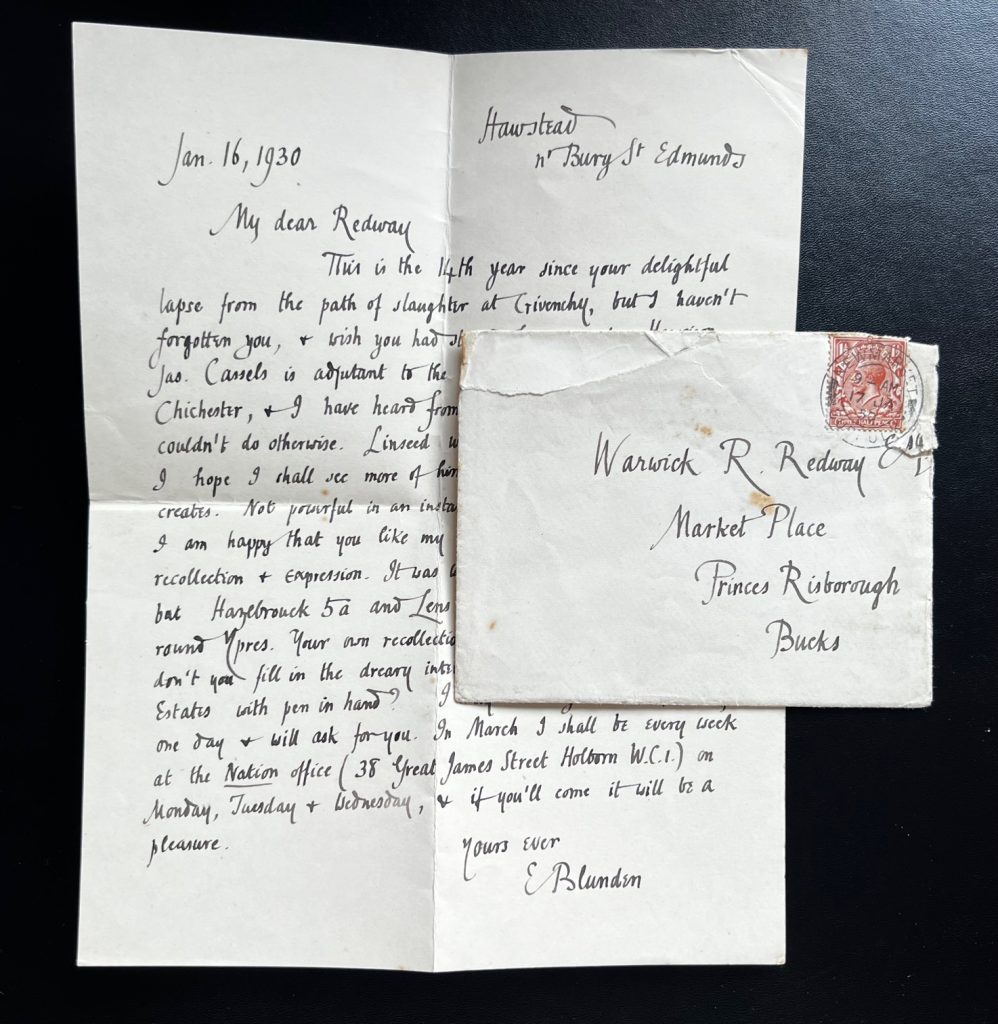 Jan. 16, 1930
Hawstead
nr Bury St Edmunds
My dear Redway
This is the 14th year since your delightful
lapse from the path of slaughter at Givenchy, but I haven't
forgotten you, & wish you had
Jas. Cassels is adjutant to the
Chichester, & I have heard from
couldn't do otherwise. Linseed
I hope I shall see more of him
creates. Not powerful in an
I am happy that you like my
recollection & expression. It was
but Hazebrouck 5a and Lens
round Ypres. Your own
don't you fill in the dreary
Estates with pen in hand? I
one day & will ask for you. In March I shall be every week
at the Nation office (38 Great James Street Holborn W.C.1.) on
Monday, Tuesday & Wednesday, & if you'll come it will be a
pleasure.
Yours ever
E Blunden
NEWMARKET
17 JA
Warwick R. Redway
Market Place
Princes Risborough
Bucks